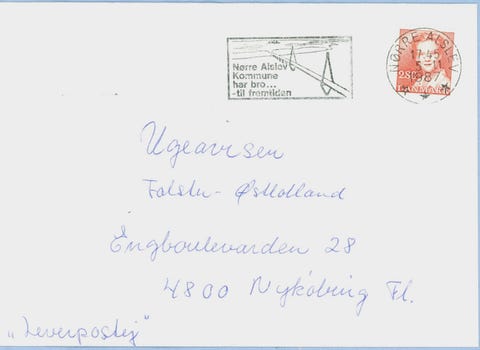 Nørre Alslev
Kommune
har bro...
-til fremtiden
NØRRE ALSLEV
17-45
1987
DANMARK
Ugeavisen
Falster - Østlolland
Engboulevarden 28
4800 Nykøbing Fl.
„Leverpostej"